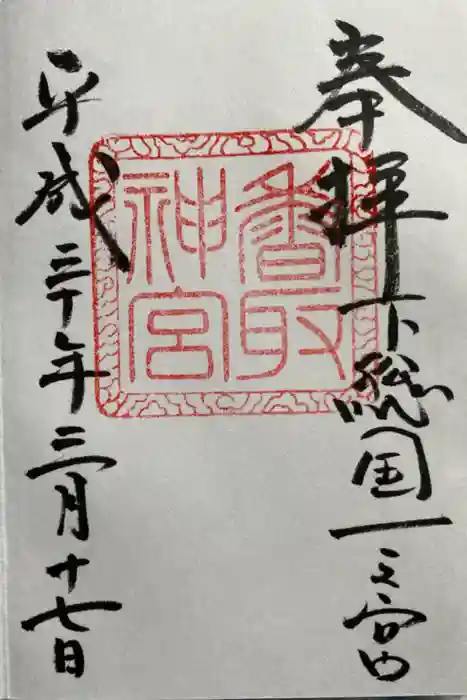 奉拝 下総国一之宮
香取
神宮
平成三十年三月十七日